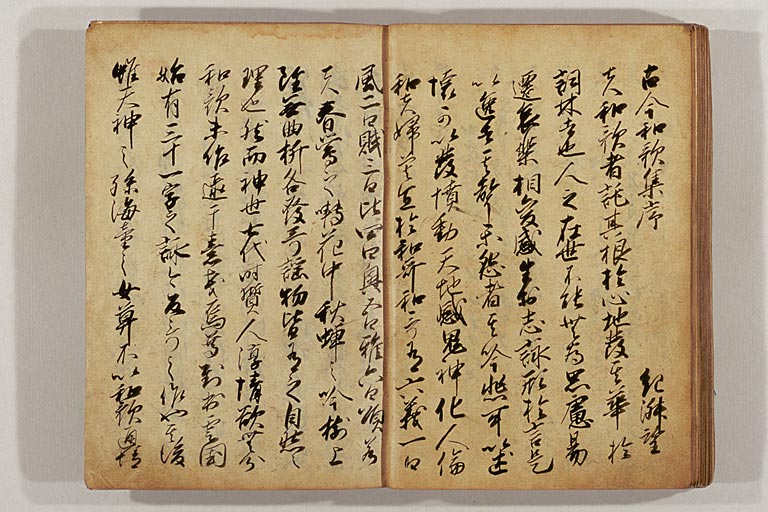 古今和歌集序 紀淑望
夫和歌者託其根於心地發其華於
詞林者也人之在世不能無為思慮易
遷哀樂相變感生於志詠形於言是
以逸者其聲樂怨者其吟悲可以述
懷可以發憤動天地感鬼神化人倫
和夫婦莫宜於和哥和哥有六義一曰
風二曰賦三曰比四曰興五曰雅六曰頌若
夫春鶯之囀花中秋蟬之吟樹上
雖無曲折各發哥謠物皆有之自然之
理也然而神世七代時質人淳情欲無分
和歌未作逮于素戔烏尊到出雲國
始有三十一字之詠今反哥之作也其後
雖天神之孫海童之女莫不以和歌通情